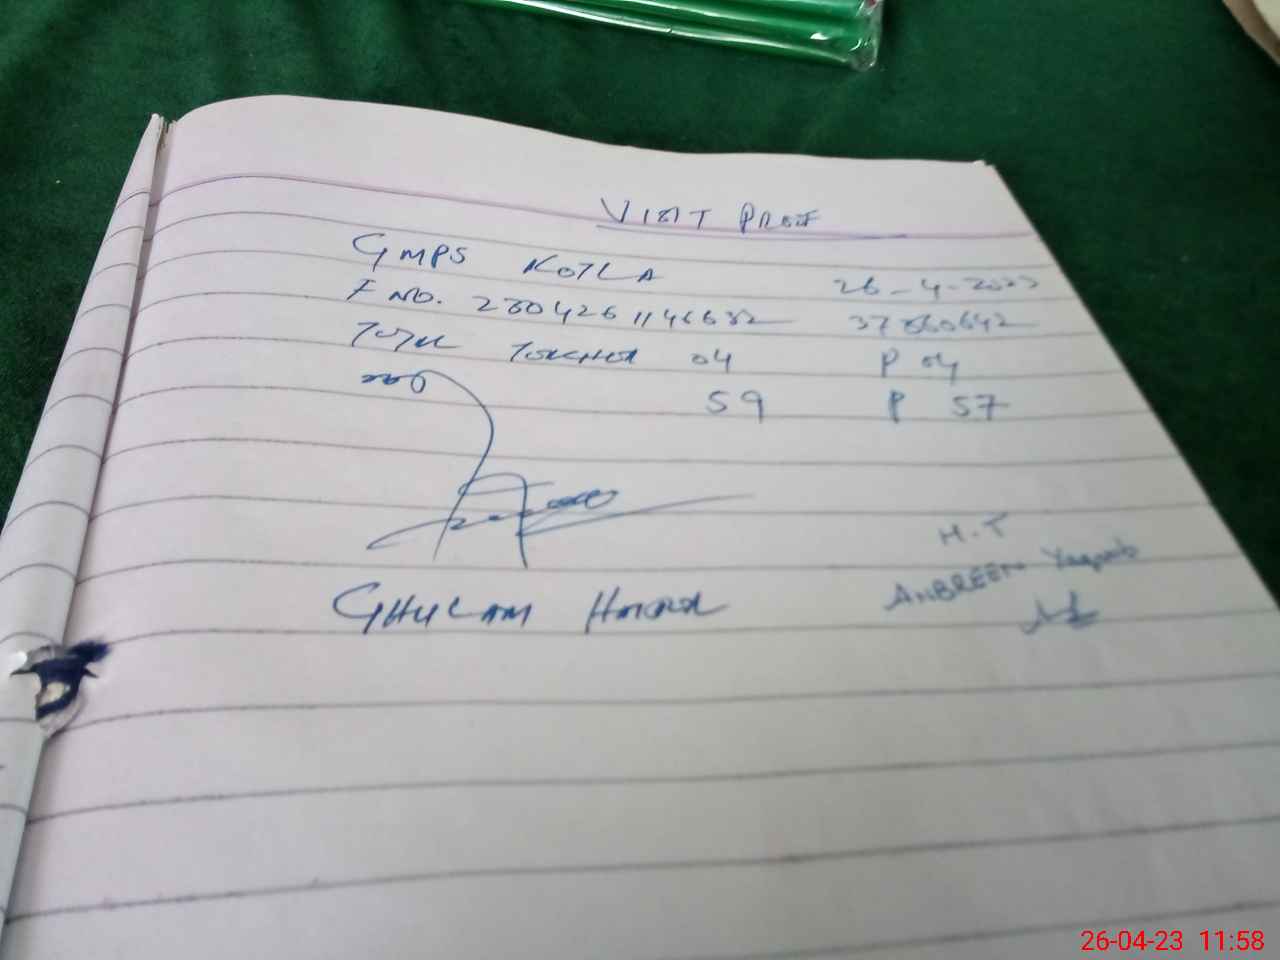 VISIT PROOF
GMPS KOTLA 26-4-2023
F NO. 2304261146632 37360642
TOTAL TEACHER 04 P 04
59 P 57
H.T
ANBREEN Yaqoob
GHULAM
26-04-23 11:58